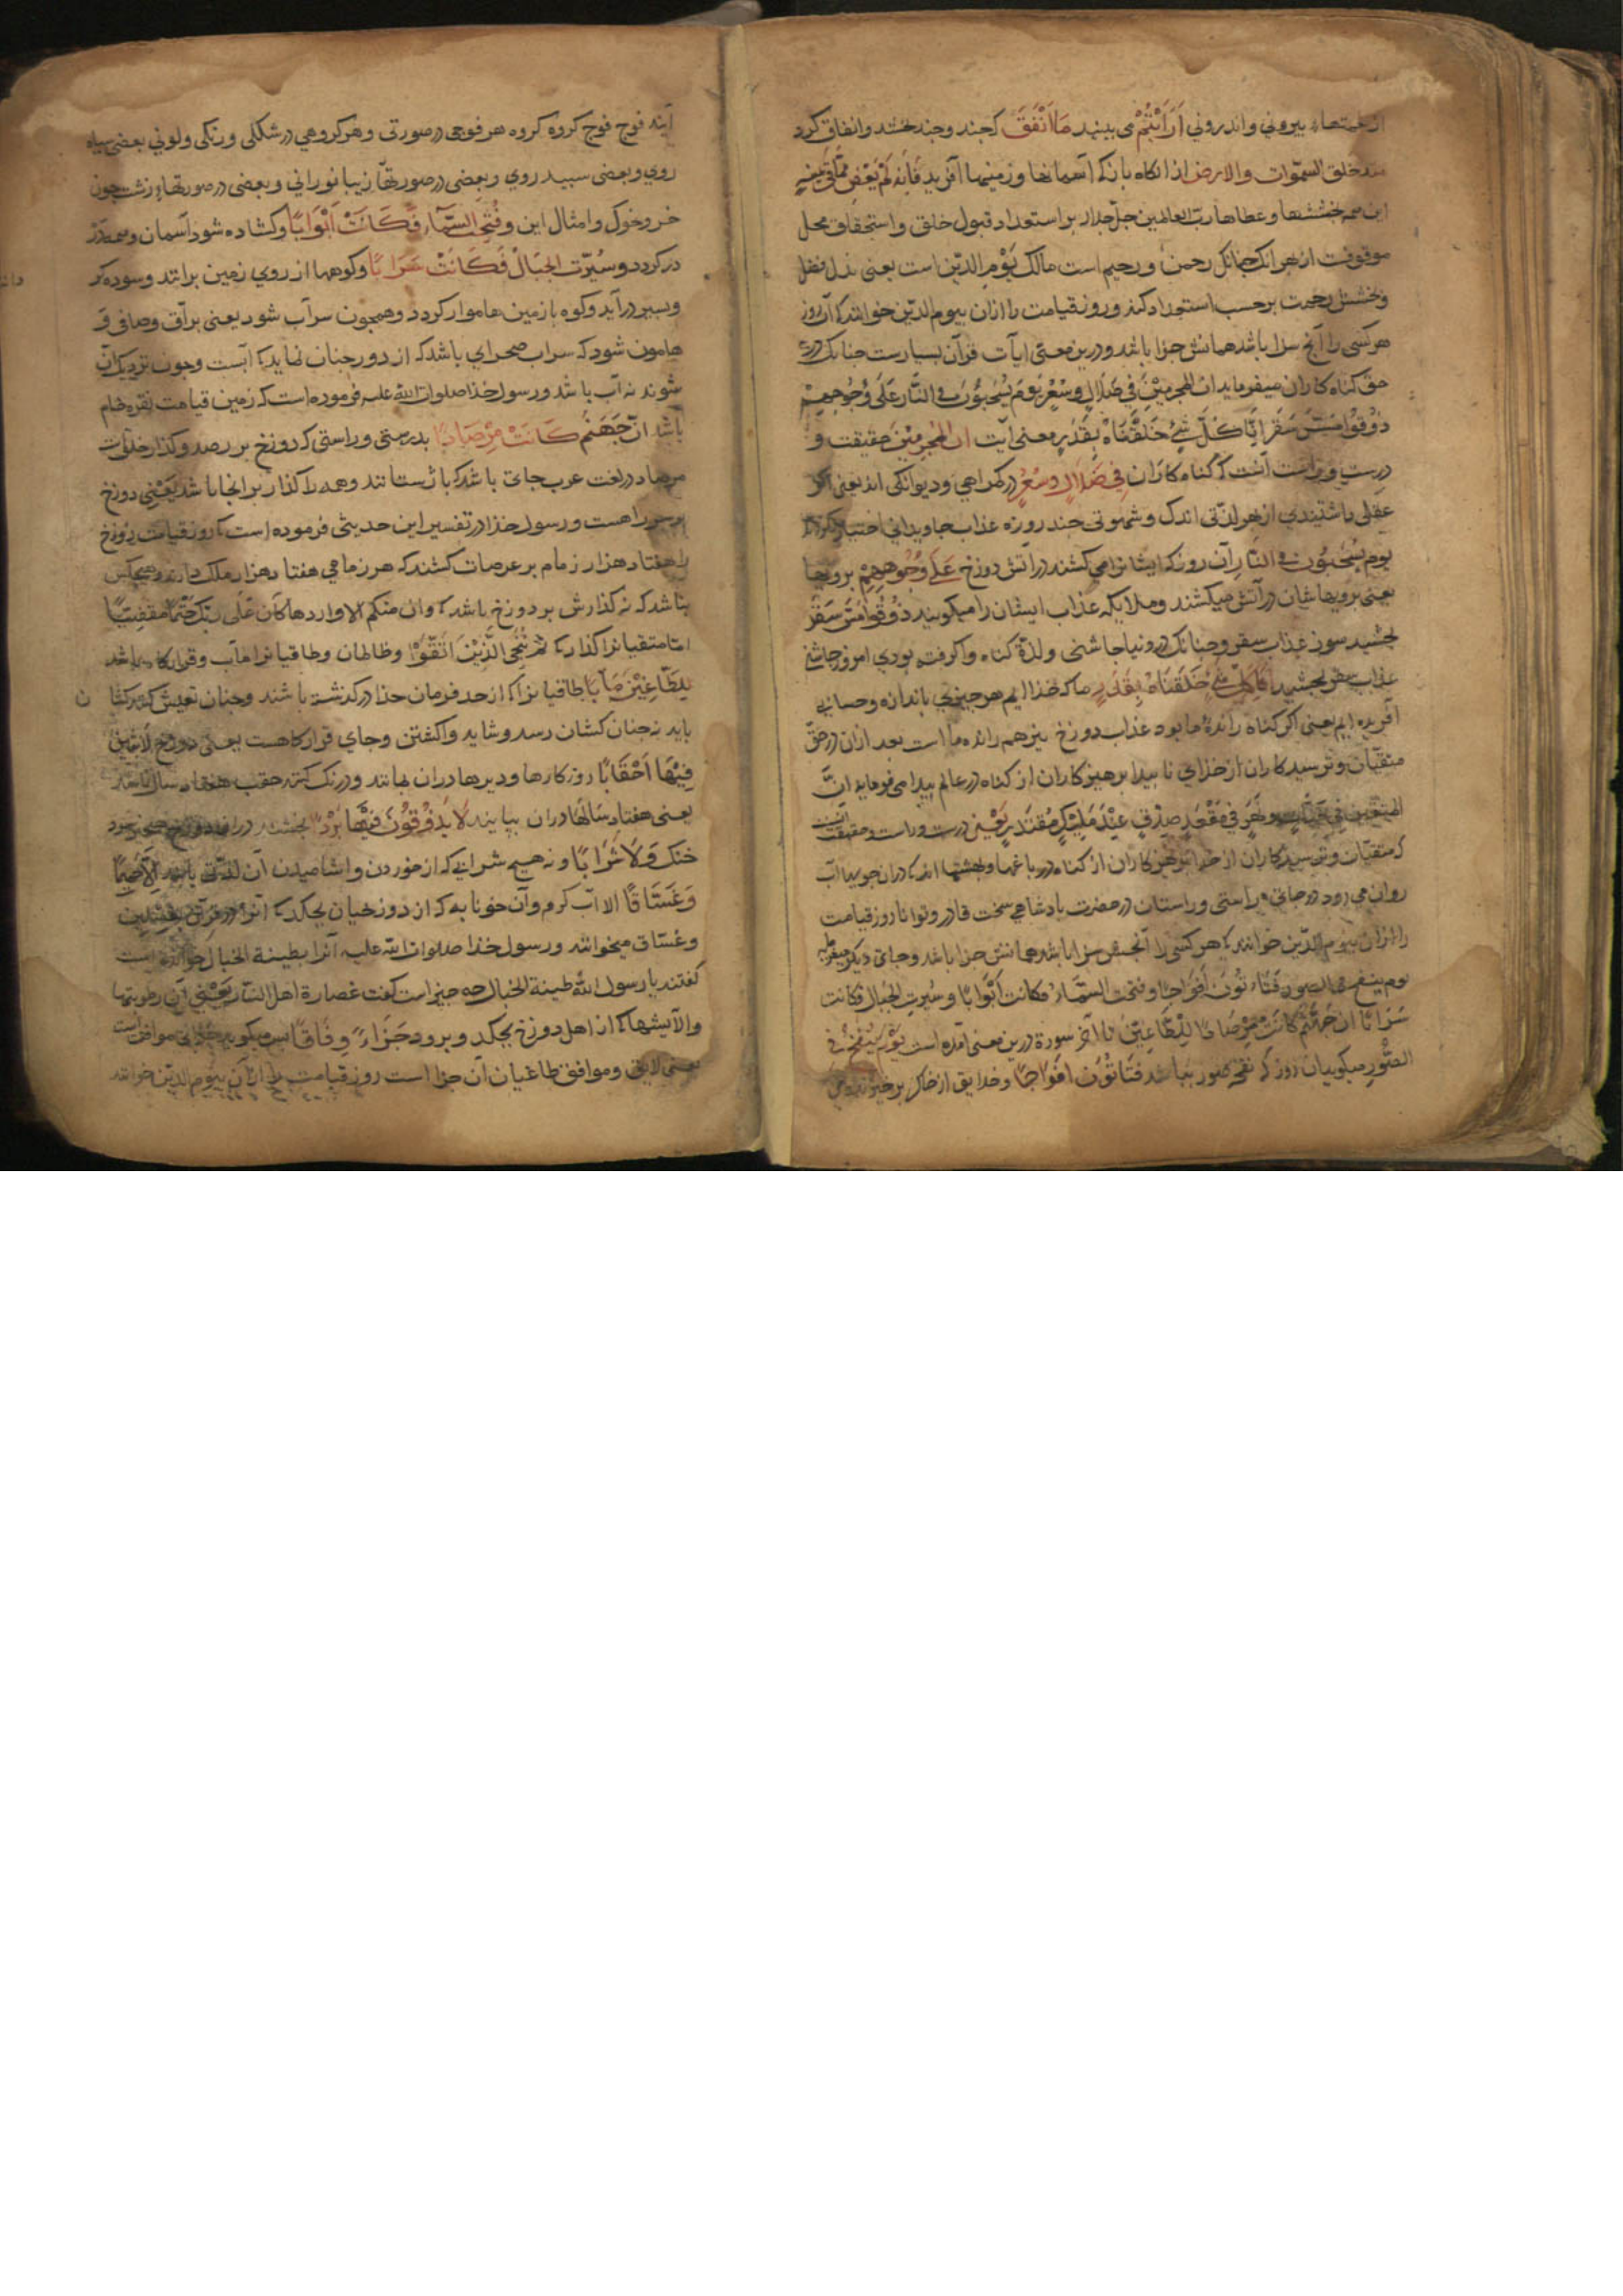 بیرونی واندرونی اَرَاَیْتُمْ می بینید مَا اَنْفَقَ که چند وچند بخشید وانفاق کرد
خلق السموات والارض از انکاه بازکه آسمانها وزمینها آفرید فَاِنَّهُ لَمْ یَغِضْ مَا فی یمینه
این همه بخششها وعطاها ربّ العالمین جلّ جلاله بر استعداد قبول خلق واستحقاق محل
موقوفست ازبهر انک چنانک رحمن ورحیم است مالک یَوْمِ الدّین است یعنی بذل فضل
وبخشش رحمت برحسب استعداد کند وروز قیامت را ازان بیوم الدّین خوانند که آن روز
هرکسی را آنچ سزا باشد همانش جزا باشد ودرین معنی ایآت قرآن بسیارست چنانک در
حق کناه کاران میفرماید ان المجرمیْنَ فی ضَلَالٍ وسُعُرٍ یَوْمَ یُسْحَبُوْنَ فی النَّار عَلَی وُجُوهِهِمْ
ذُوقُوْا مَسَّ سَقَرَ اِنَّا کُلَّ شَیْءٍ خَلَقْنَاهُ بِقَدَرٍ معنی آیت ان المُجْرِمِیْنَ حقیقت و
درستی وراست آنست که کناه کاران فی ضَلَالٍ وسُعُرٍ در کمراهی ودیوانکی اند یعنی اکر
عقلی داشتندی از بهر لذّتی اندک وشهوتی چند روزه عذاب جاویدانی اختیار نکردندی
یوم یُسْحَبُوْنَ فی النَّار آن روزکه ایشانرا می کشند در آتش دوزخ عَلَی وُجُوهِهِمْ برویها
یعنی برویهاشان در آتش میکشند وملایکه عذاب ایشان را میکویند ذُوقُوا مَسَّ سَقَرَ
بچشید سوز عذاب سقر وچنانک در دنیا چاشنی ولذّة کناه واکرفته بودی امروز چاشنی
عذاب سقر بچشید اِنَّا کُلَّ شَیْءٍ خَلَقْنَاهُ بِقَدَرٍ ما که خذا ایم هر چیزی باندازه وحسابی
آفریده ایم یعنی اکر کناه رانده ما بود عذاب دوزخ نیز هم رانده ما است بعد ازان در حقّ
متقیان وترسیدکاران از خذای ناپیدا پرهیزکاران از کناه در عالم پیدا می فرماید انَّ
المتقین فی جنّات ونَهَر فی مَقْعَدِ صِدْقٍ عِنْدَ مَلِیْکٍ مُقْتَدِرٍ یَعْنِی درست وراست وحقیقت آنست
که متقیان وترسیدکاران از خذا پرهیزکاران از کناه در باغها وبهشتها اند که دران جویها آب
روان می رود در جای راستی وراستان در حضرت پادشاهی سخت قادر وتوانا روز قیامت
را ازان بیوم الدّین خوانند که هر کسی را آنچش سزا باشد همانش جزا باشد وجای دیکر میفرماید
یوم ینفخ فی الصور فَتَاْتُوْنَ اَفْوَاجًا وفتحت السَّمَاءُ فکانت اَبْوَابًا وسُیّرتِ الجبال فکانت
سَرَابًا ان جَهَنَّمَ کَانَتْ مِرْصَادًا لِلْطَّاغِیْنَ تا آخر سورة درین معنی آمده است یَوْمَ یُنْفَخُ فی
الصُّوْرِ میکوید آن روز که نفخ صور باشد فَتَاْتُوْنَ اَفْوَاجًا وخلایق از خاک برخیزند
آیند فوج فوج کروه کروه هر فوجی در صورتی وهر کروهی در شکلی ورنکی ولونی بعضی سیاه
روی وبعضی سپید روی وبعضی در صورتها زیبا نورانی وبعضی در صورتهاء زشت چون
خر وخوک وامثال این وفُتِحَتِ السَّمَآءُ فَکَانَتْ اَبْوَابًا وکشاده شود آسمان وهمه در
در کردد وسُیّرت الجِبَالُ فَکَانَتْ سَرَابًا وکوهها از روی زمین برانند وسوده کر
وبسیر درآید وکوه با زمین هاموار کردد وهمچون سرآب شود یعنی برآق وصافی و
هامون شود که سراب صحرای باشد که از دور چنان نماید که آبست وچون نزدیک آن
شوند نه آب باشد ورسول خذا صلوات الله علیه فرموده است که زمین قیامت نقره خام
باشد انّ جَهَنَّمَ کَانَتْ مِرْصَادًا بدرستی وراستی که دوزخ بر رصد وکذار خلق است
مرصاد در لغت عرب جای باشد که باژ ستانند وهمه را کذار بر انجا باشد یَعْنِی دوزخ
راهست ورسول خذا در تفسیر این حدیثی فرموده است که روز قیامت دوزخ
را هفتاد هزار زمام بر عرصات کشند که هر زمامی هفتاد هزار ملک دارند وهیچکس
نباشد که نه کذارش بر دوزخ باشد که وان منکم الا واردها کان عَلی ربک حَتْمًا مقضیًا
امّا متقیانرا کذارد که ثُمَّ نُنَجِّی الَّذِیْنَ اتَّقَوْا وظالمان وطاغیانرا مآب وقرارکاه باشد
لِلطَّاغِیْنَ مَآبًا طاغیانرا که از حد فرمان خذا در کذشته باشند وچنان
باید نه چنان کشان رسد وشاید واکشتن وجای قرارکاهست یعنی دوزخ لَابِثِیْنَ
فِیْهَا اَحْقَابًا روزکارها ودیرها دران بمانند ودرنک کنند حقب هفتاد سال باشد
یعنی هفتاد سالها دران بپایند لَا یَذُوْقُوْنَ فِیْهَا بَرْدًا نچشند دران دوزخ هیچ
خنک وَلَا شَرَابًا ونه هیچ شرابی که از خوردن واشامیدن آن لذّتی باشد اِلَّا حَمِیْمًا
وَغَسَّاقًا الا آب کرم وآن خونابه که از دوزخیان بچکد که آنرا در قرآن غسلین
وغسّاق میخوانند ورسول خذا صلوات الله علیه آنرا بطینة الخبال خوانده است
کفتند یا رسول الله طینة الخبال چه چیز است کفت عصارة اهل النّار یَعْنِی آن رطوبتها
والآیشها که از اهل دوزخ بچکد وبرود جَزَاءً وِفَاقًا میکوید جزایی موافق است
یعنی لایق وموافق طاغیان آن جزا است روز قیامت را ازان بیوم الدّین خوانند